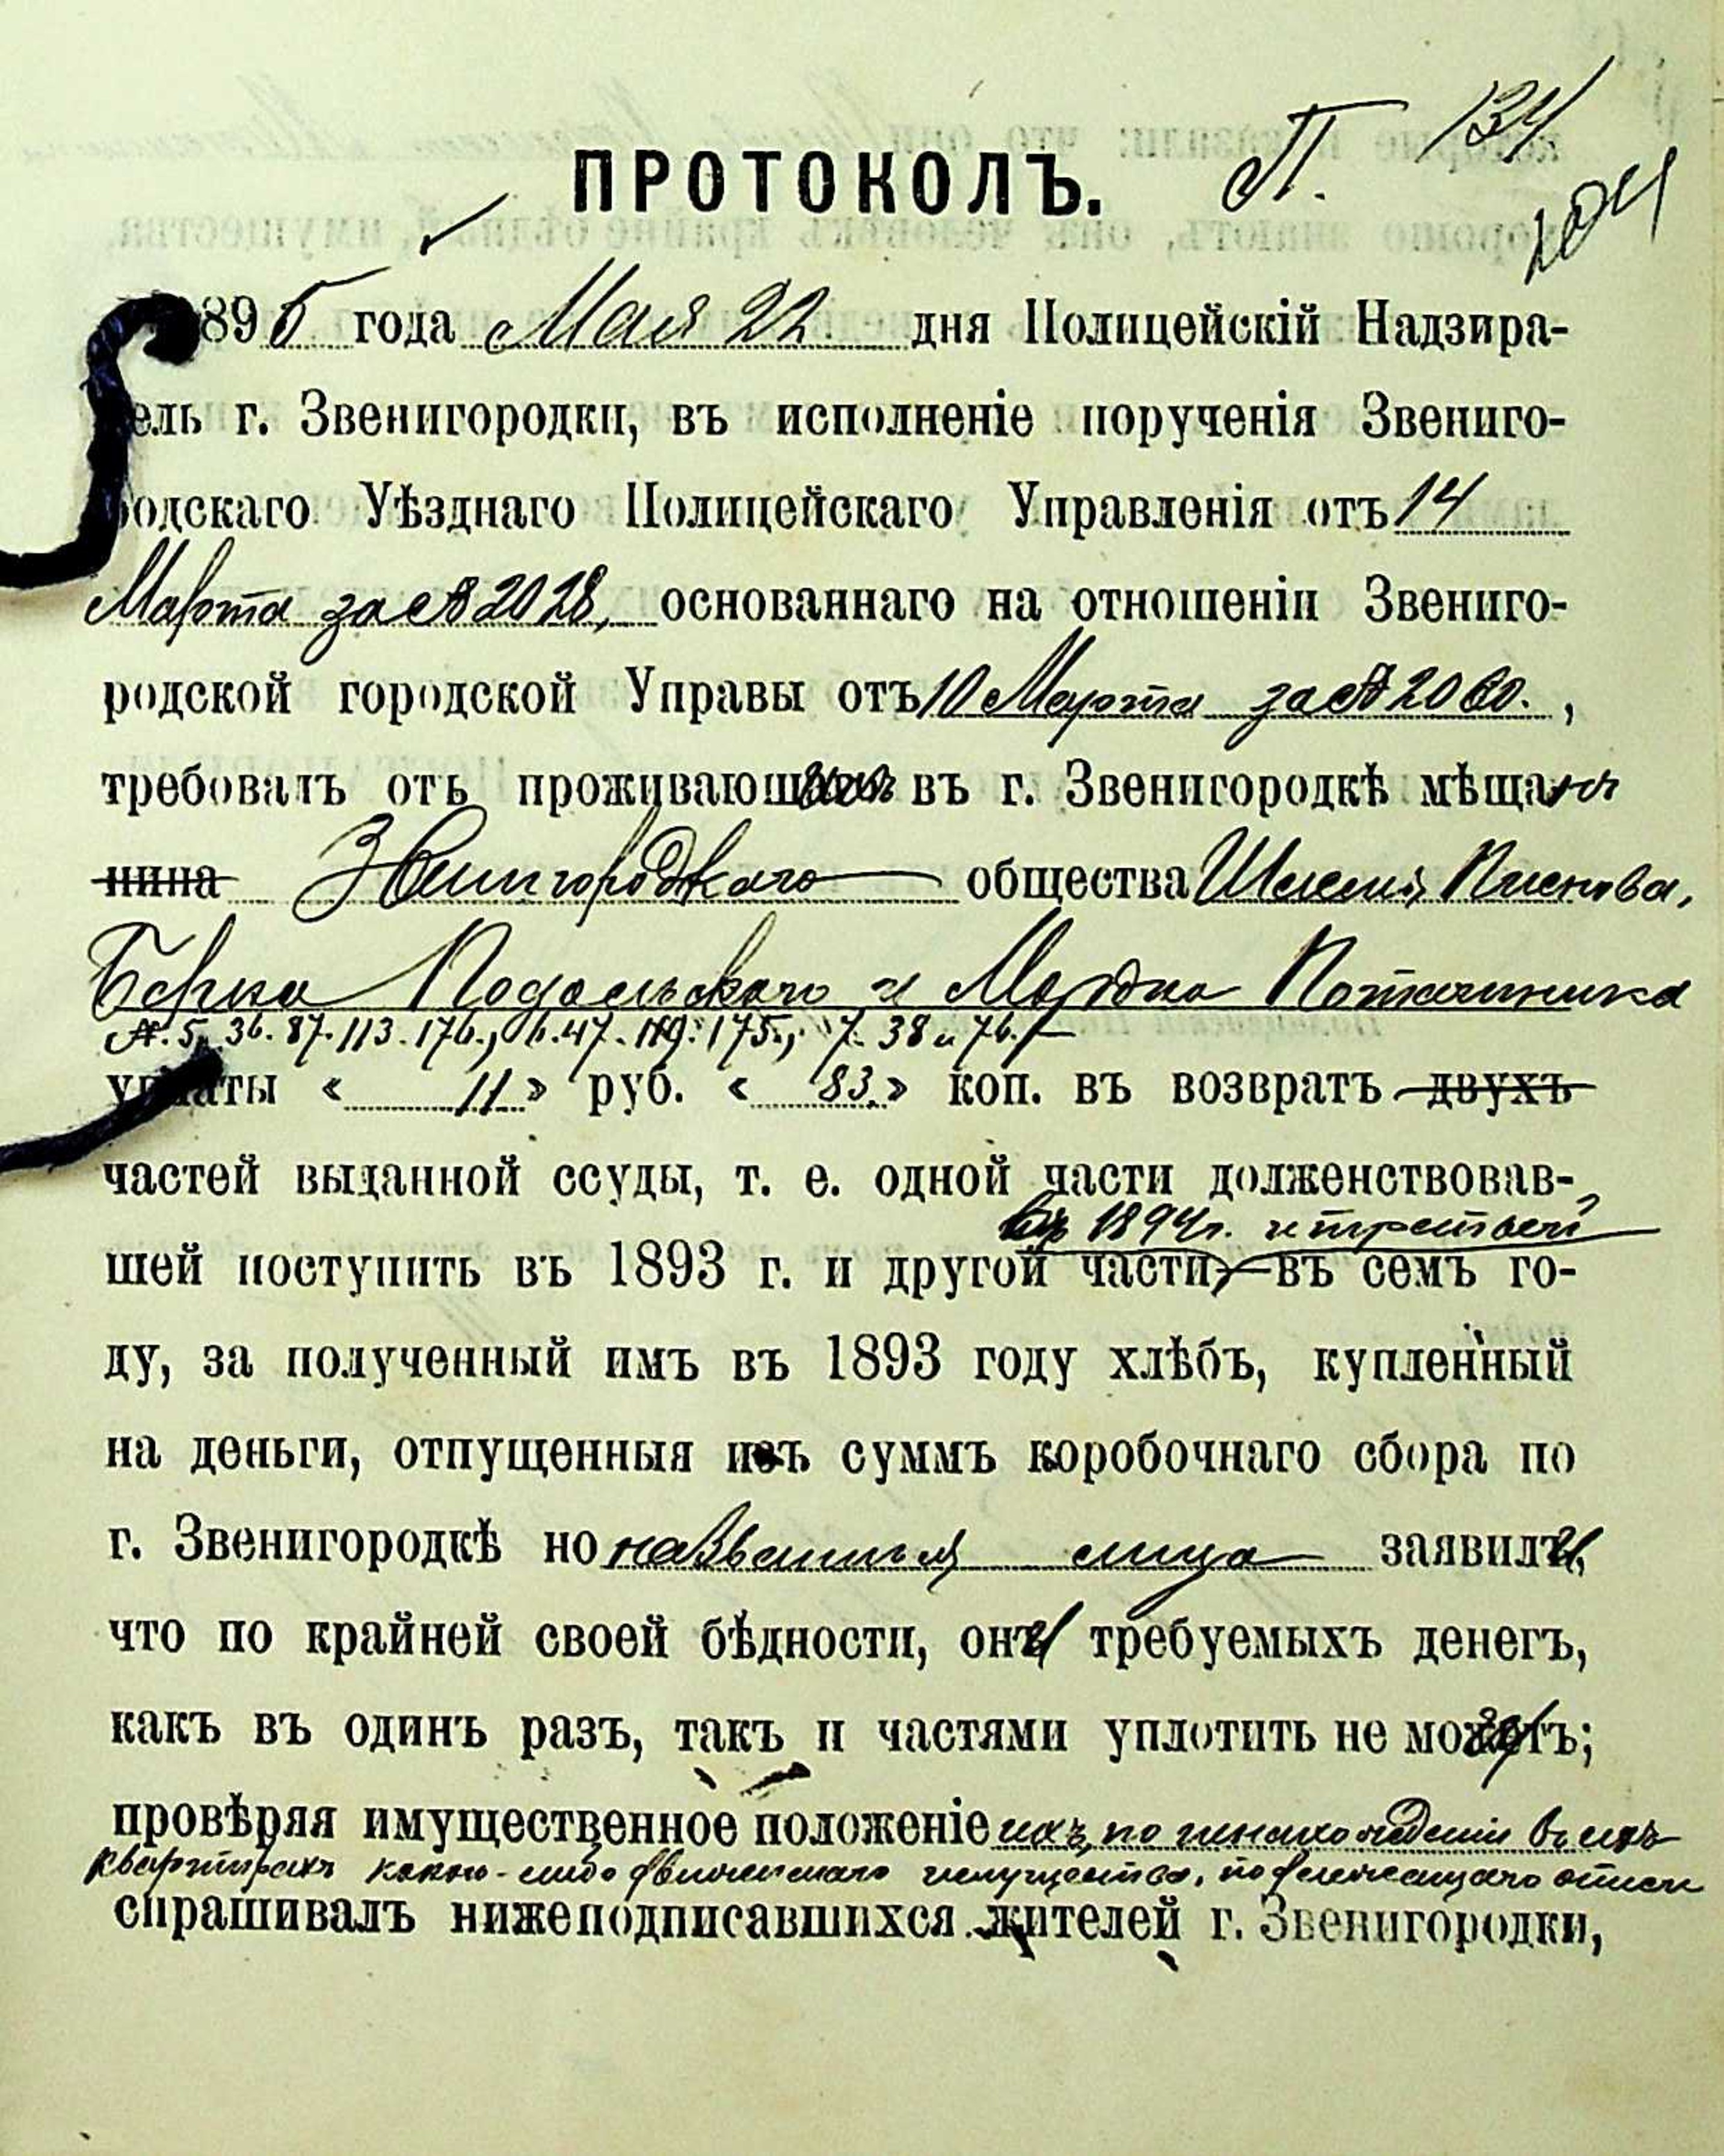 П. 134
204
ПРОТОКОЛЪ.
895 года Мая 22 дня Полицейскій Надзира-
ель г. Звенигородки, въ исполненіе порученія Звениго-
родскаго Уѣзднаго Полицейскаго Управленія отъ 14
Марта за № 2028, основаннаго на отношеніи Звениго-
родской городской Управы отъ 10 Марта за № 2060. ,
требовалъ отъ проживающихъ въ г. Звенигородкѣ мѣщанъ
нина Звенигородскаго общества
Берка Подольскаго и Мордка
№. 5, 36. 87. 113. 176., 6. 47. 119. 175., 7. 38 и 76.
уплаты « 11 » руб. « 83. » коп. въ возвратъ двухъ
частей выданной ссуды, т. е. одной части долженствовав-
въ 1894 г. и третьей
шей поступить въ 1893 г. и другой части, въ семъ го-
ду, за полученный имъ въ 1893 году хлѣбъ, купленный
на деньги, отпущенныя изъ суммъ коробочнаго сбора по
г. Звенигородкѣ но названныя лица заявили,
что по крайней своей бѣдности, они требуемыхъ денегъ,
какъ въ одинъ разъ, такъ и частями уплотить не могутъ;
провѣряя имущественное положеніе ихъ, по ненахожденіи въ ихъ
квартирахъ какого-либо движимаго имущества, подлежащаго описи
спрашивалъ нижеподписавшихся жителей г. Звенигородки,